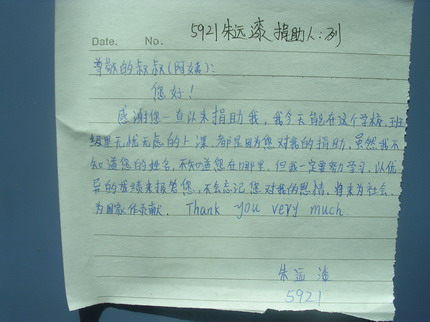 5921 朱远漆 捐助人:列
Date. No.
尊敬的叔叔(阿姨):
您好!
感谢您一直以来捐助我,我今天能在这个学校、班
级里无忧无虑的上课,都是因为您对我的捐助,虽然我不
知道您的姓名,不知道您在哪里,但我一定要努力学习,以优
异的成绩来报答您,不会忘记您对我的恩情,将来为社会、
为国家作贡献. Thank you very much
朱远漆
5921